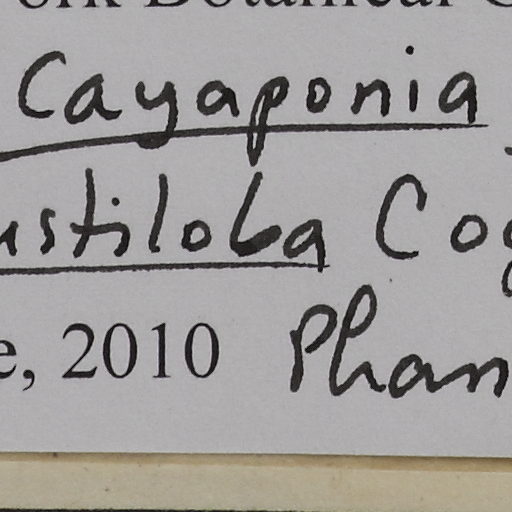 ork Botanical
Cayaponia
ustiloba Cog
e, 2010 Phan